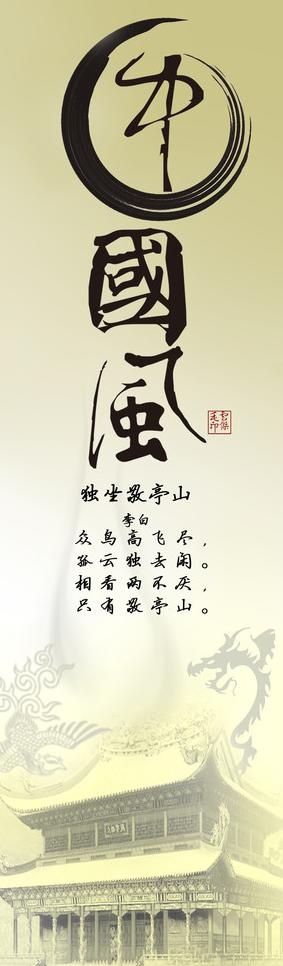 中國風
独坐敬亭山
李白
众鸟高飞尽，
孤云独去闲。
相看两不厌，
只有敬亭山。